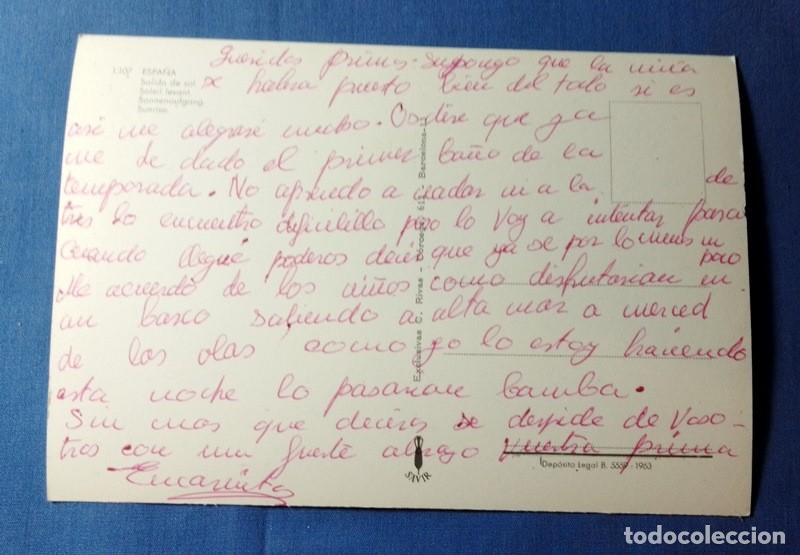 1.107 ESPAÑA
Salida de sol.
Soleil levant.
Sonnenaufgang.
Sunrise.
Queridos primos: supongo que la niña
se habra puesto bien del todo si es
asi me alegrare mucho. que ya
me he dado el primer baño de la
temporada. No aprendo a nadar ni a la de
tres lo encuentro dificilillo pero lo voy a intentar para
cuando llegue poderos decir que ya se por lo menos un poco
Me acuerdo de los niños como disfrutarian en
un barco saliendo a alta mar a merced
de las olas como yo lo estoy haciendo
esta noche lo pasarian bamba.
Sin mas que deciros se despide de voso-
tros con un fuerte abrazo vuestra prima
Encarnita
Exclusivas C. Rivas - Córcega, Barcelona
SAVIR
Depósito Legal B. 5559 - 1963
todocoleccion